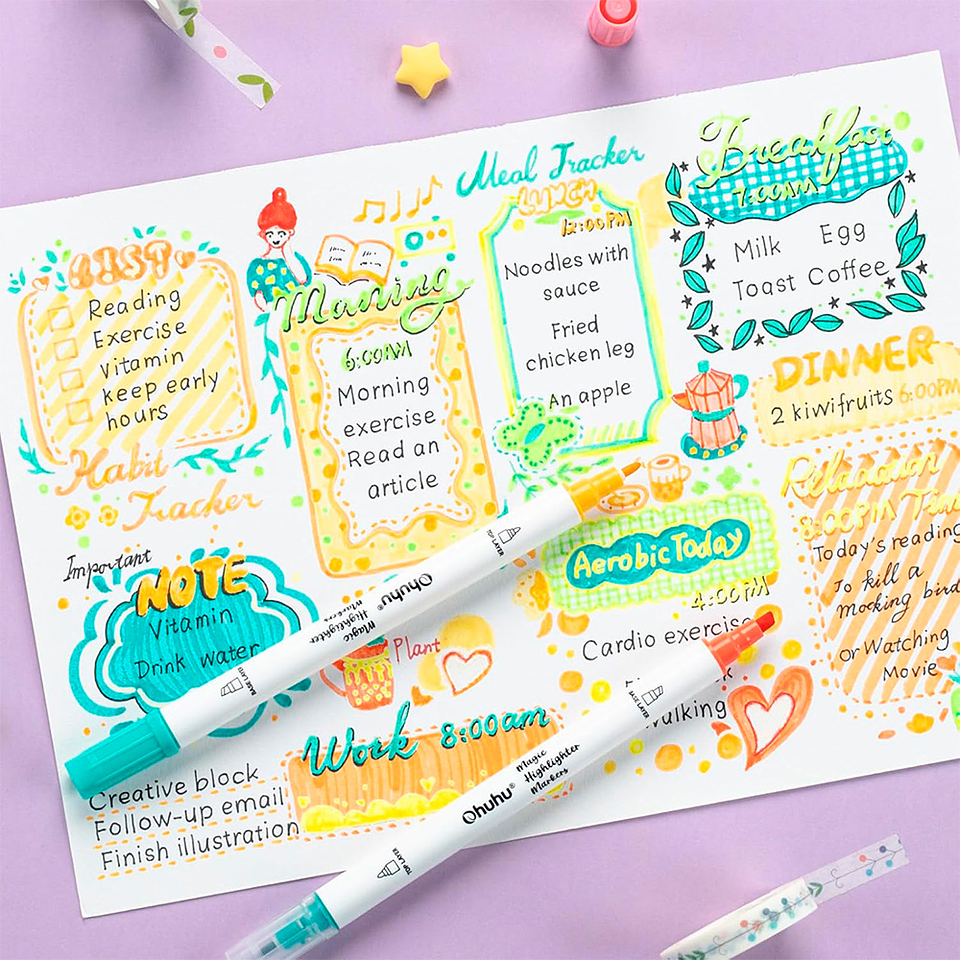 LIST
Reading
Exercise
Vitamin
keep early
hours
Habit
Tracker
Morning
6:00AM
Morning
exercise
Read an
article
Meal Tracker
LUNCH
12:00PM
Noodles with
sauce
Fried
chicken leg
An apple
Breakfast
7:00AM
Milk Egg
Toast Coffee
DINNER
2 kiwifruits 6:00PM
Important
NOTE
Vitamin
Drink water
Plant
Aerobic Today
4:00PM
Cardio exercise
walking
8:00PM Time
Today's reading
To kill a
mocking bird
or Watching
Movie
Work 8:00am
Creative block
Follow-up email
Finish illustration
TOP LAYER
Ohuhu®
Magic
Highlighter
Markers
BASE LAYER
BASE LAYER
Magic
Highlighter
Markers
Ohuhu®
TOP LAYER